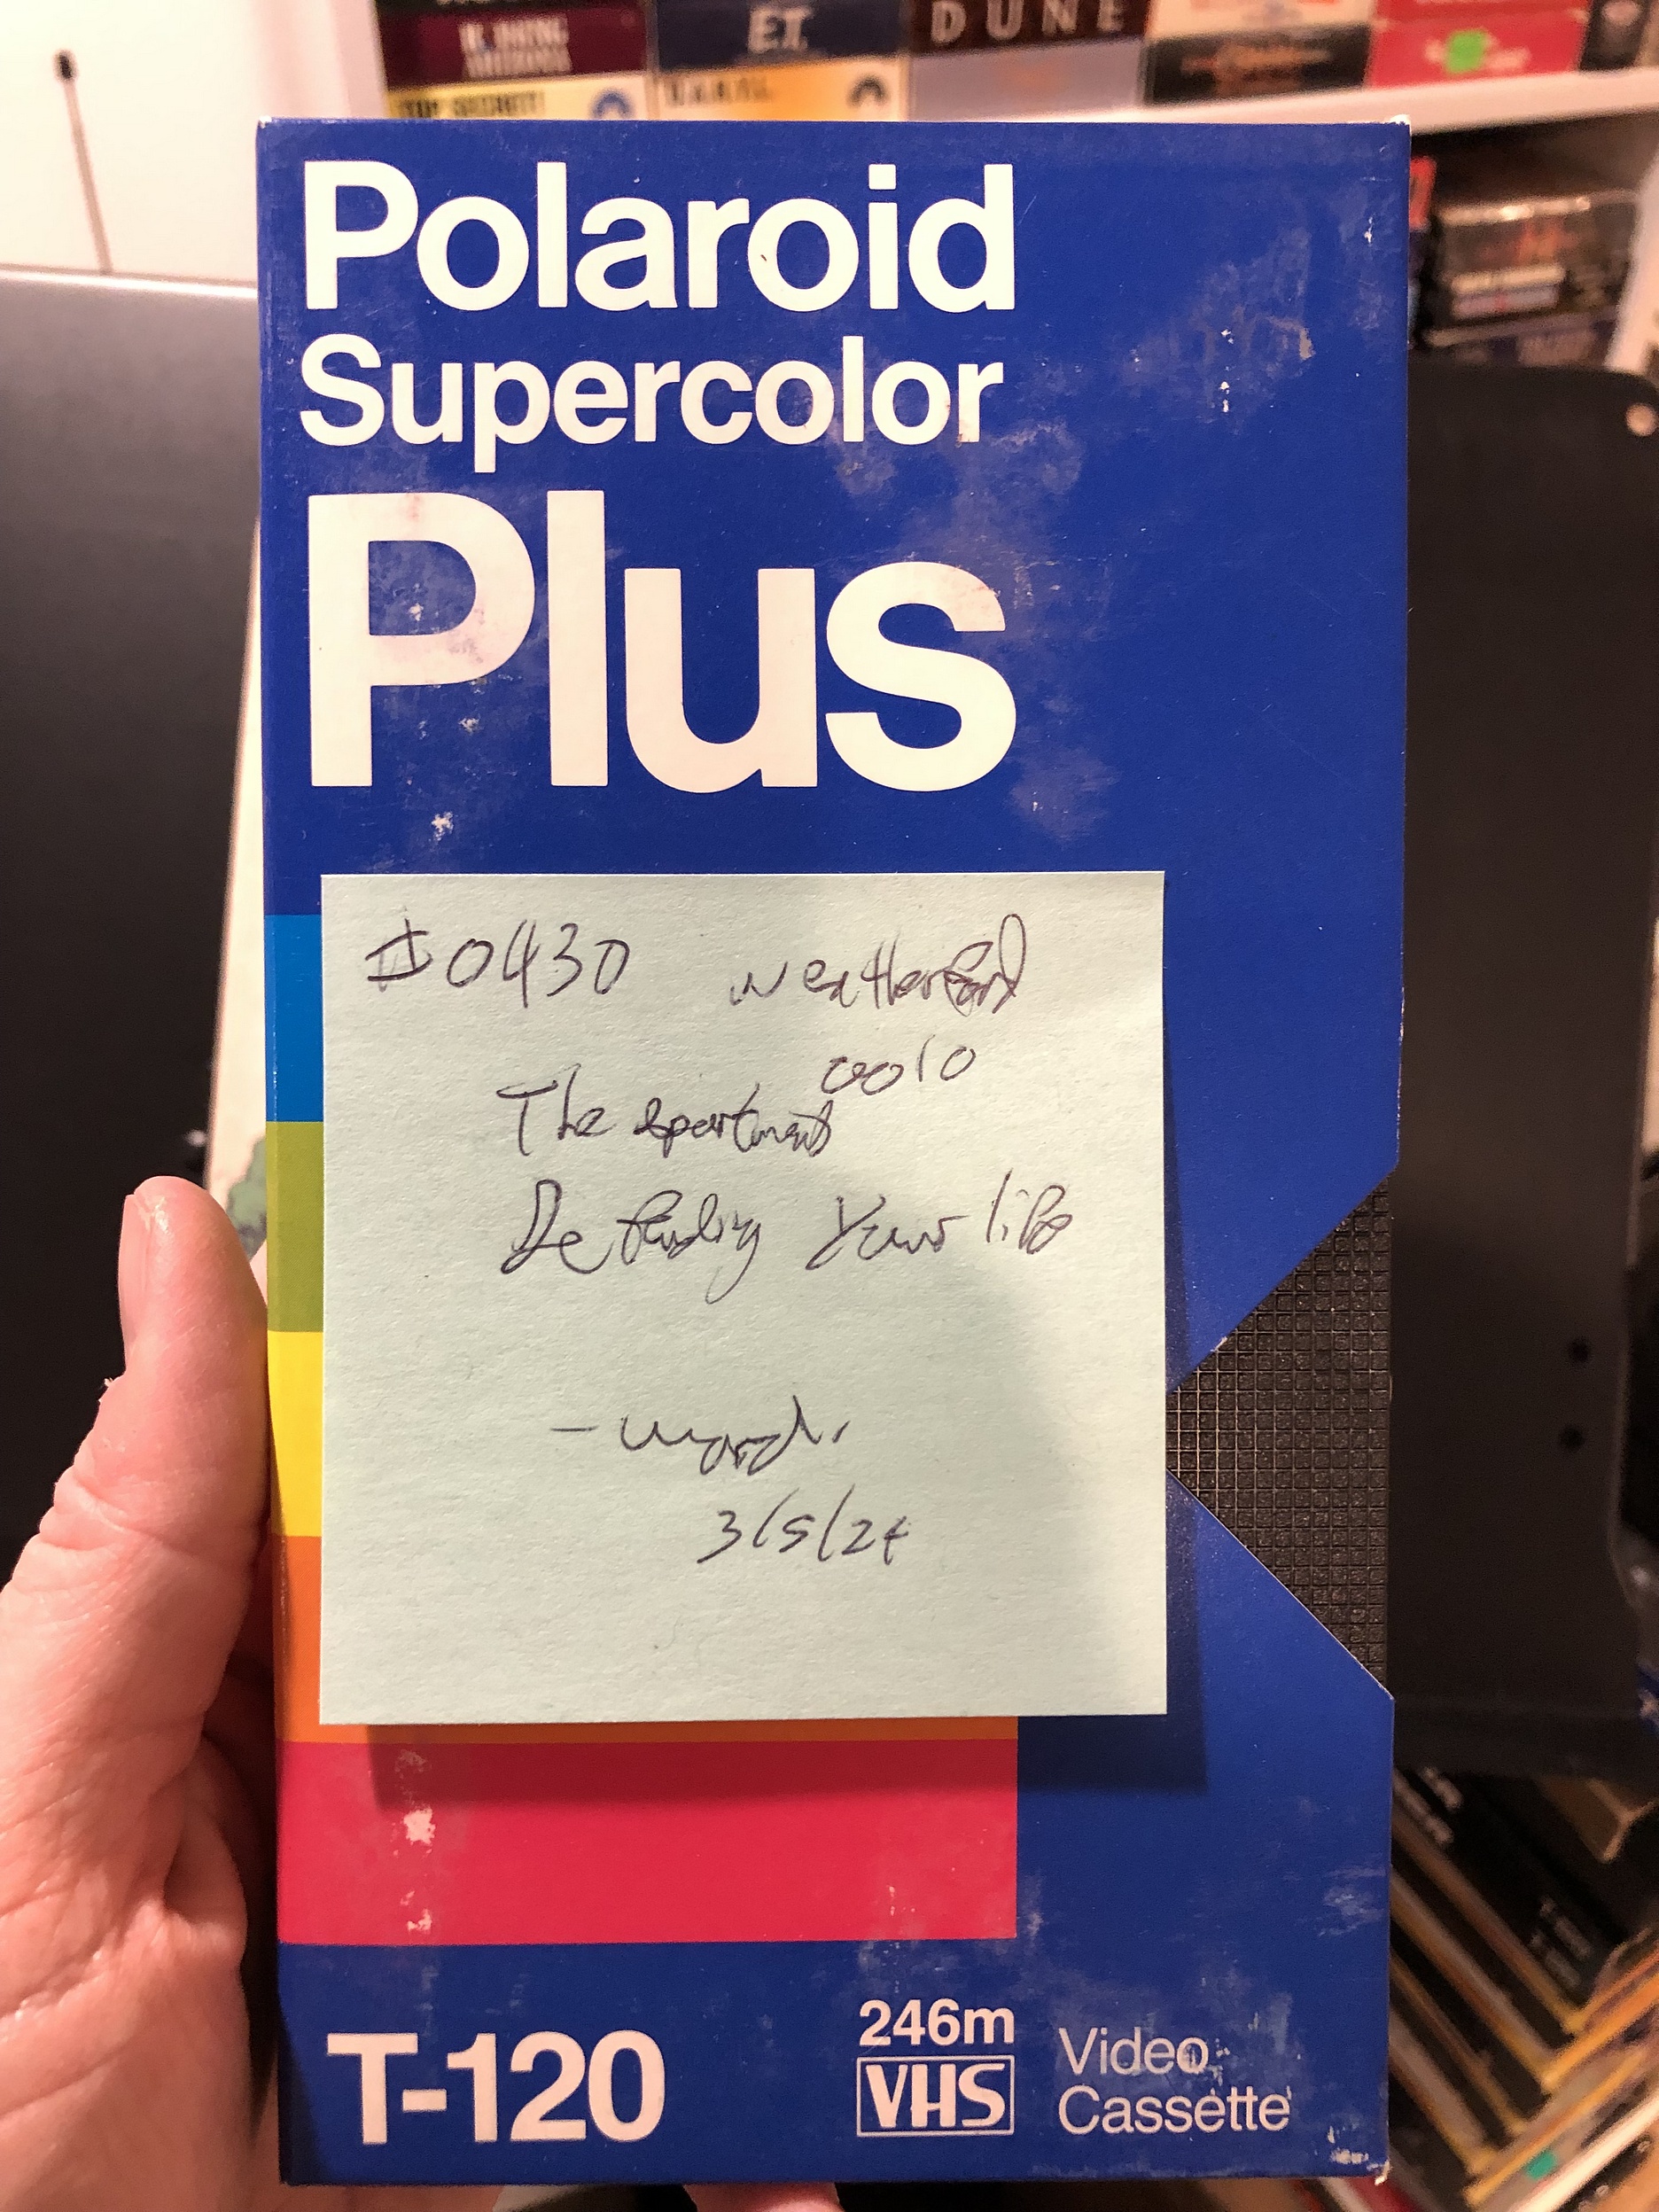 E.T.
DUNE
TOP SECRET!
Polaroid
Supercolor
Plus
#0430 weatherford
0010
The apartment
Defending Your life
3/5/24
T-120
246m
VHS
Video
Cassette